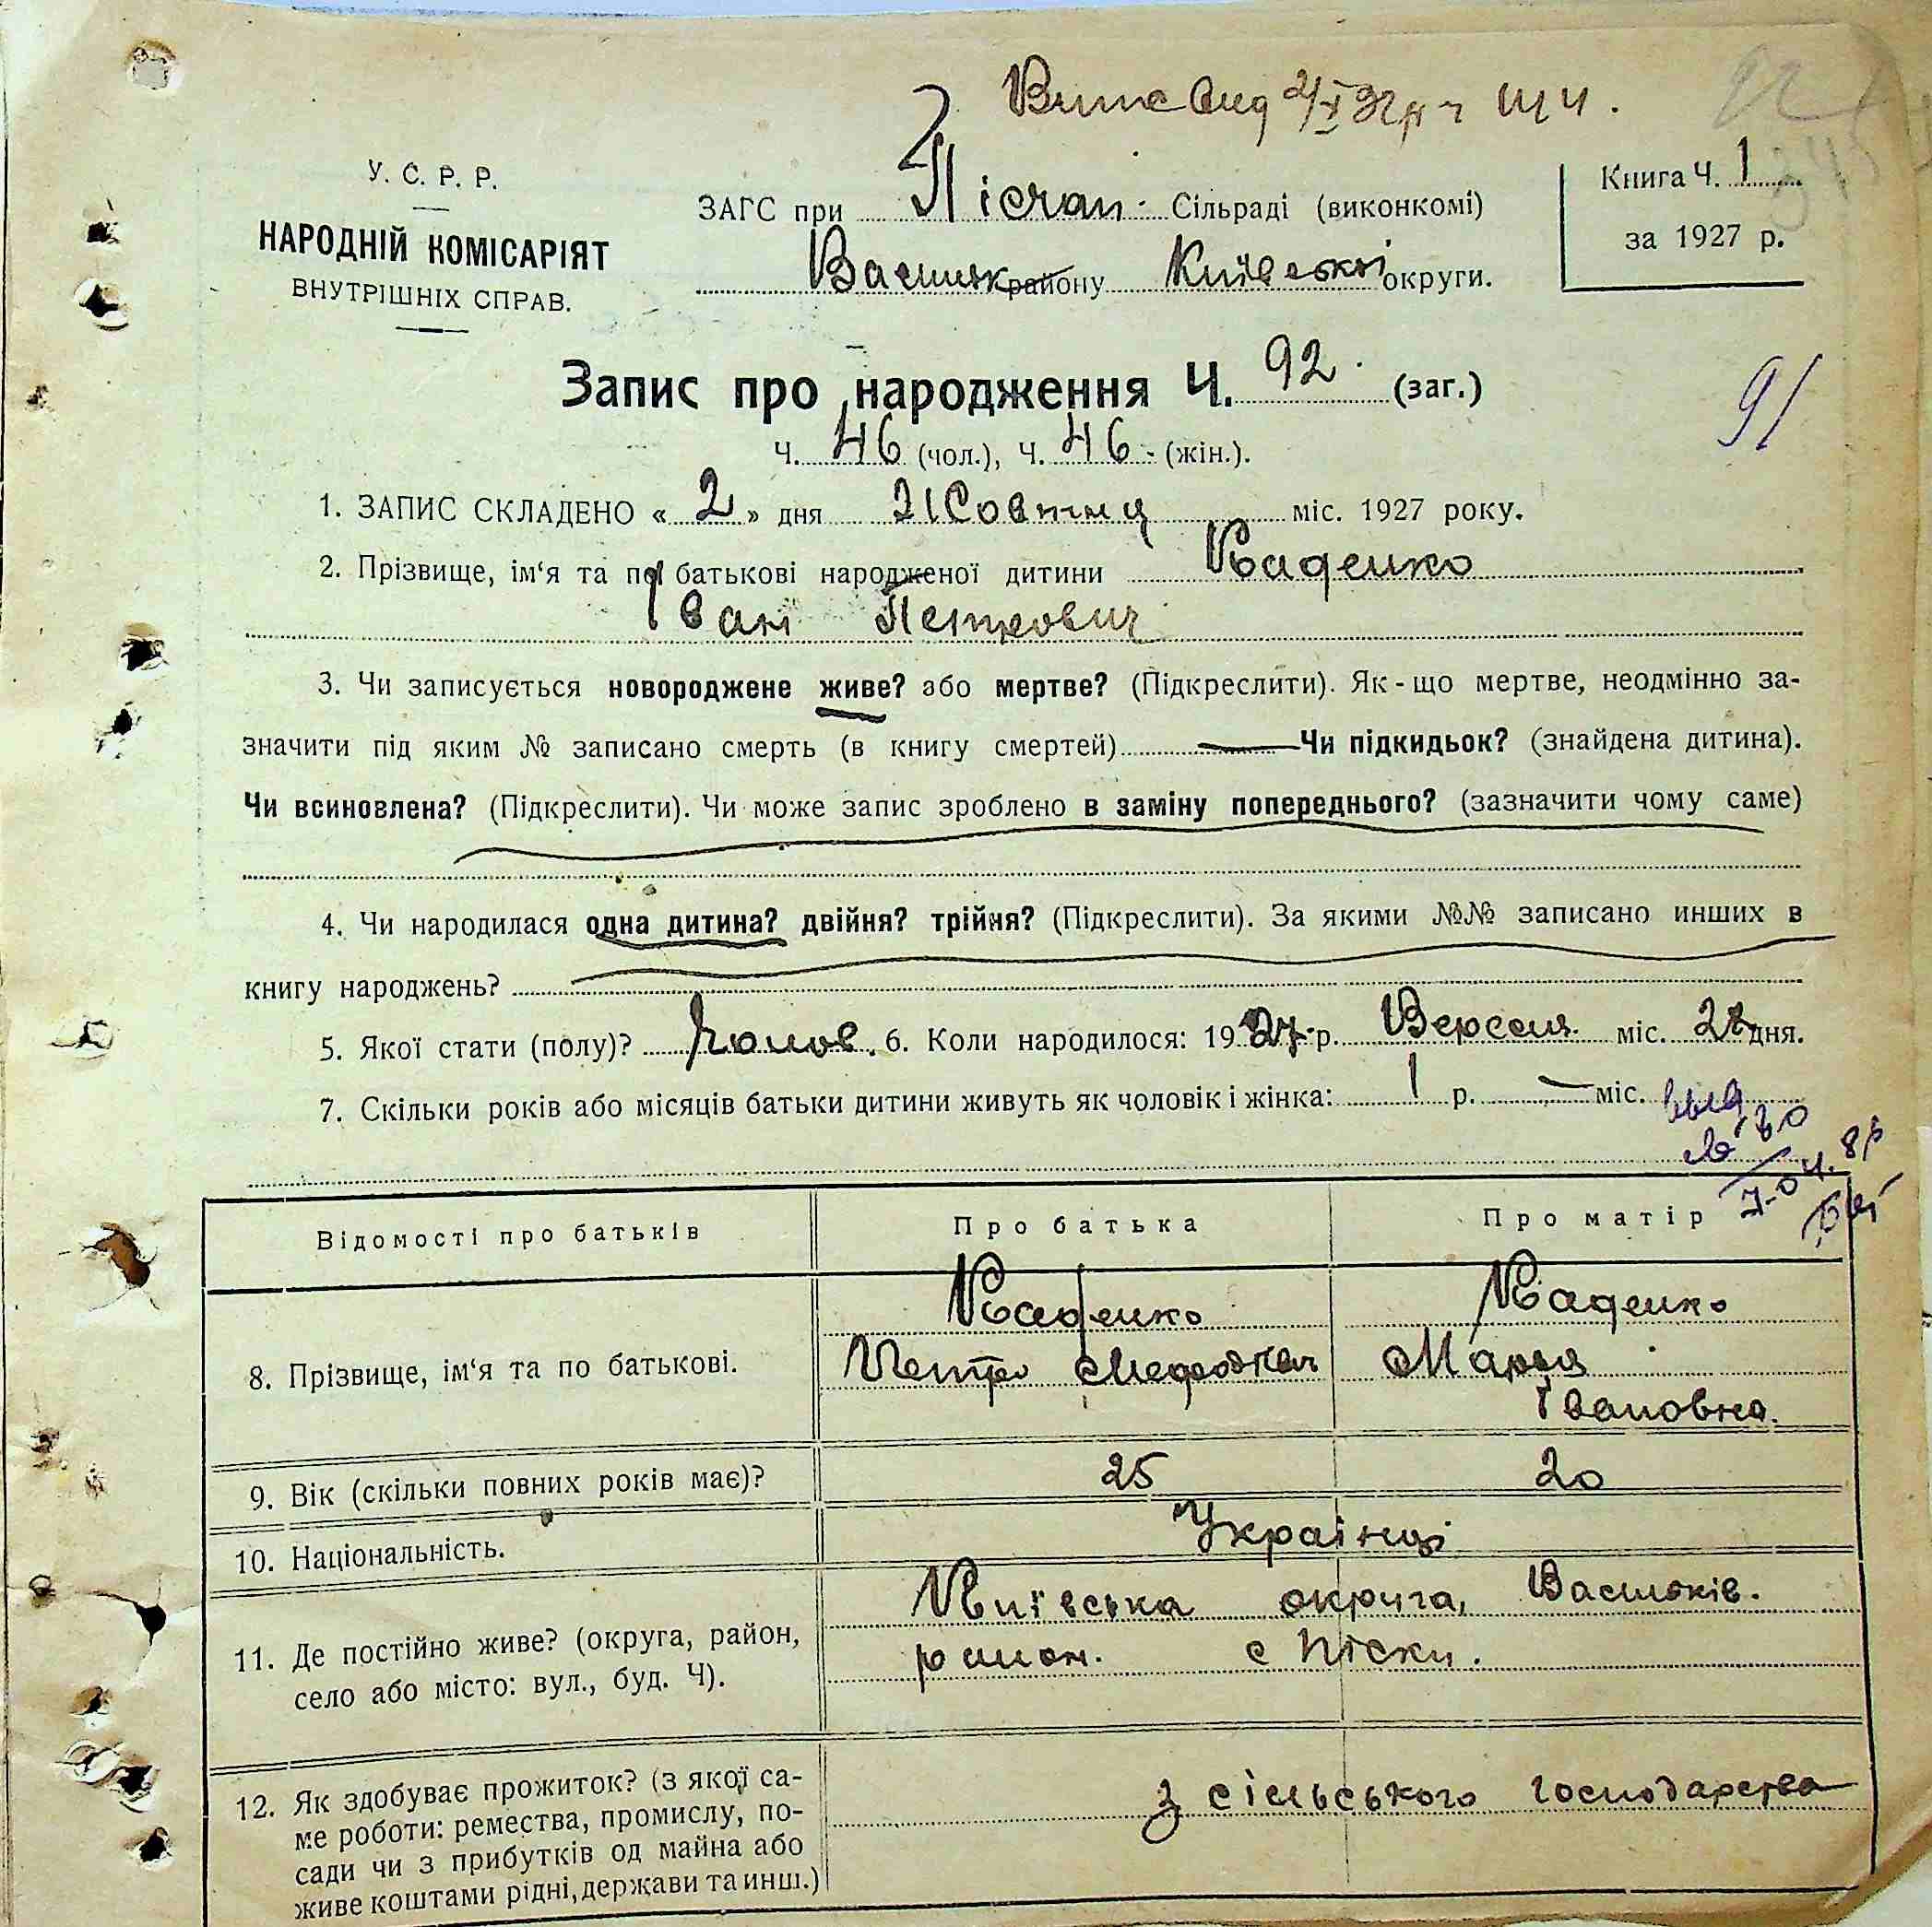 У. С. Р. Р.
НАРОДНІЙ КОМІСАРІЯТ
ВНУТРІШНІХ СПРАВ.
ЗАГС при Пісчан. Сільраді (виконкомі)
Васильк району Київської округи.
Книга Ч. 1
за 1927 р.
Запис про народження Ч. 92. (заг.)
91
Ч. 46 (чол.), Ч. 46 (жін.).
1. ЗАПИС СКЛАДЕНО « 2 » дня Жовтня міс. 1927 року.
2. Прізвище, ім‘я та по батькові народженої дитини Каденко
Іван Петрович
3. Чи записується новороджене живе? або мертве? (Підкреслити). Як-що мертве, неодмінно за-
значити під яким № записано смерть (в книгу смертей) — Чи підкидьок? (знайдена дитина).
Чи всиновлена? (Підкреслити). Чи може запис зроблено в заміну попереднього? (зазначити чому саме)
4. Чи народилася одна дитина? двійня? трійня? (Підкреслити). За якими №№ записано инших в
книгу народжень?
5. Якої стати (полу)? Чолов. 6. Коли народилося: 1927 р. Вересня міс. 28 дня.
7. Скільки років або місяців батьки дитини живуть як чоловік і жінка: 1 р. — міс.
Відомості про батьків Про батька Про матір
8. Прізвище, ім‘я та по батькові. Каденко Каденко
Петро Мефодієв Марія
Івановна.
9. Вік (скільки повних років має)? 25 20
10. Національність. Українці
11. Де постійно живе? (округа, район, Київська округа, Васильків.
село або місто: вул., буд. Ч). район. с Піски.
12. Як здобуває прожиток? (з якої са- з сільського господарства
ме роботи: ремества, промислу, по-
сади чи з прибутків од майна або
живе коштами рідні, держави та инш.)